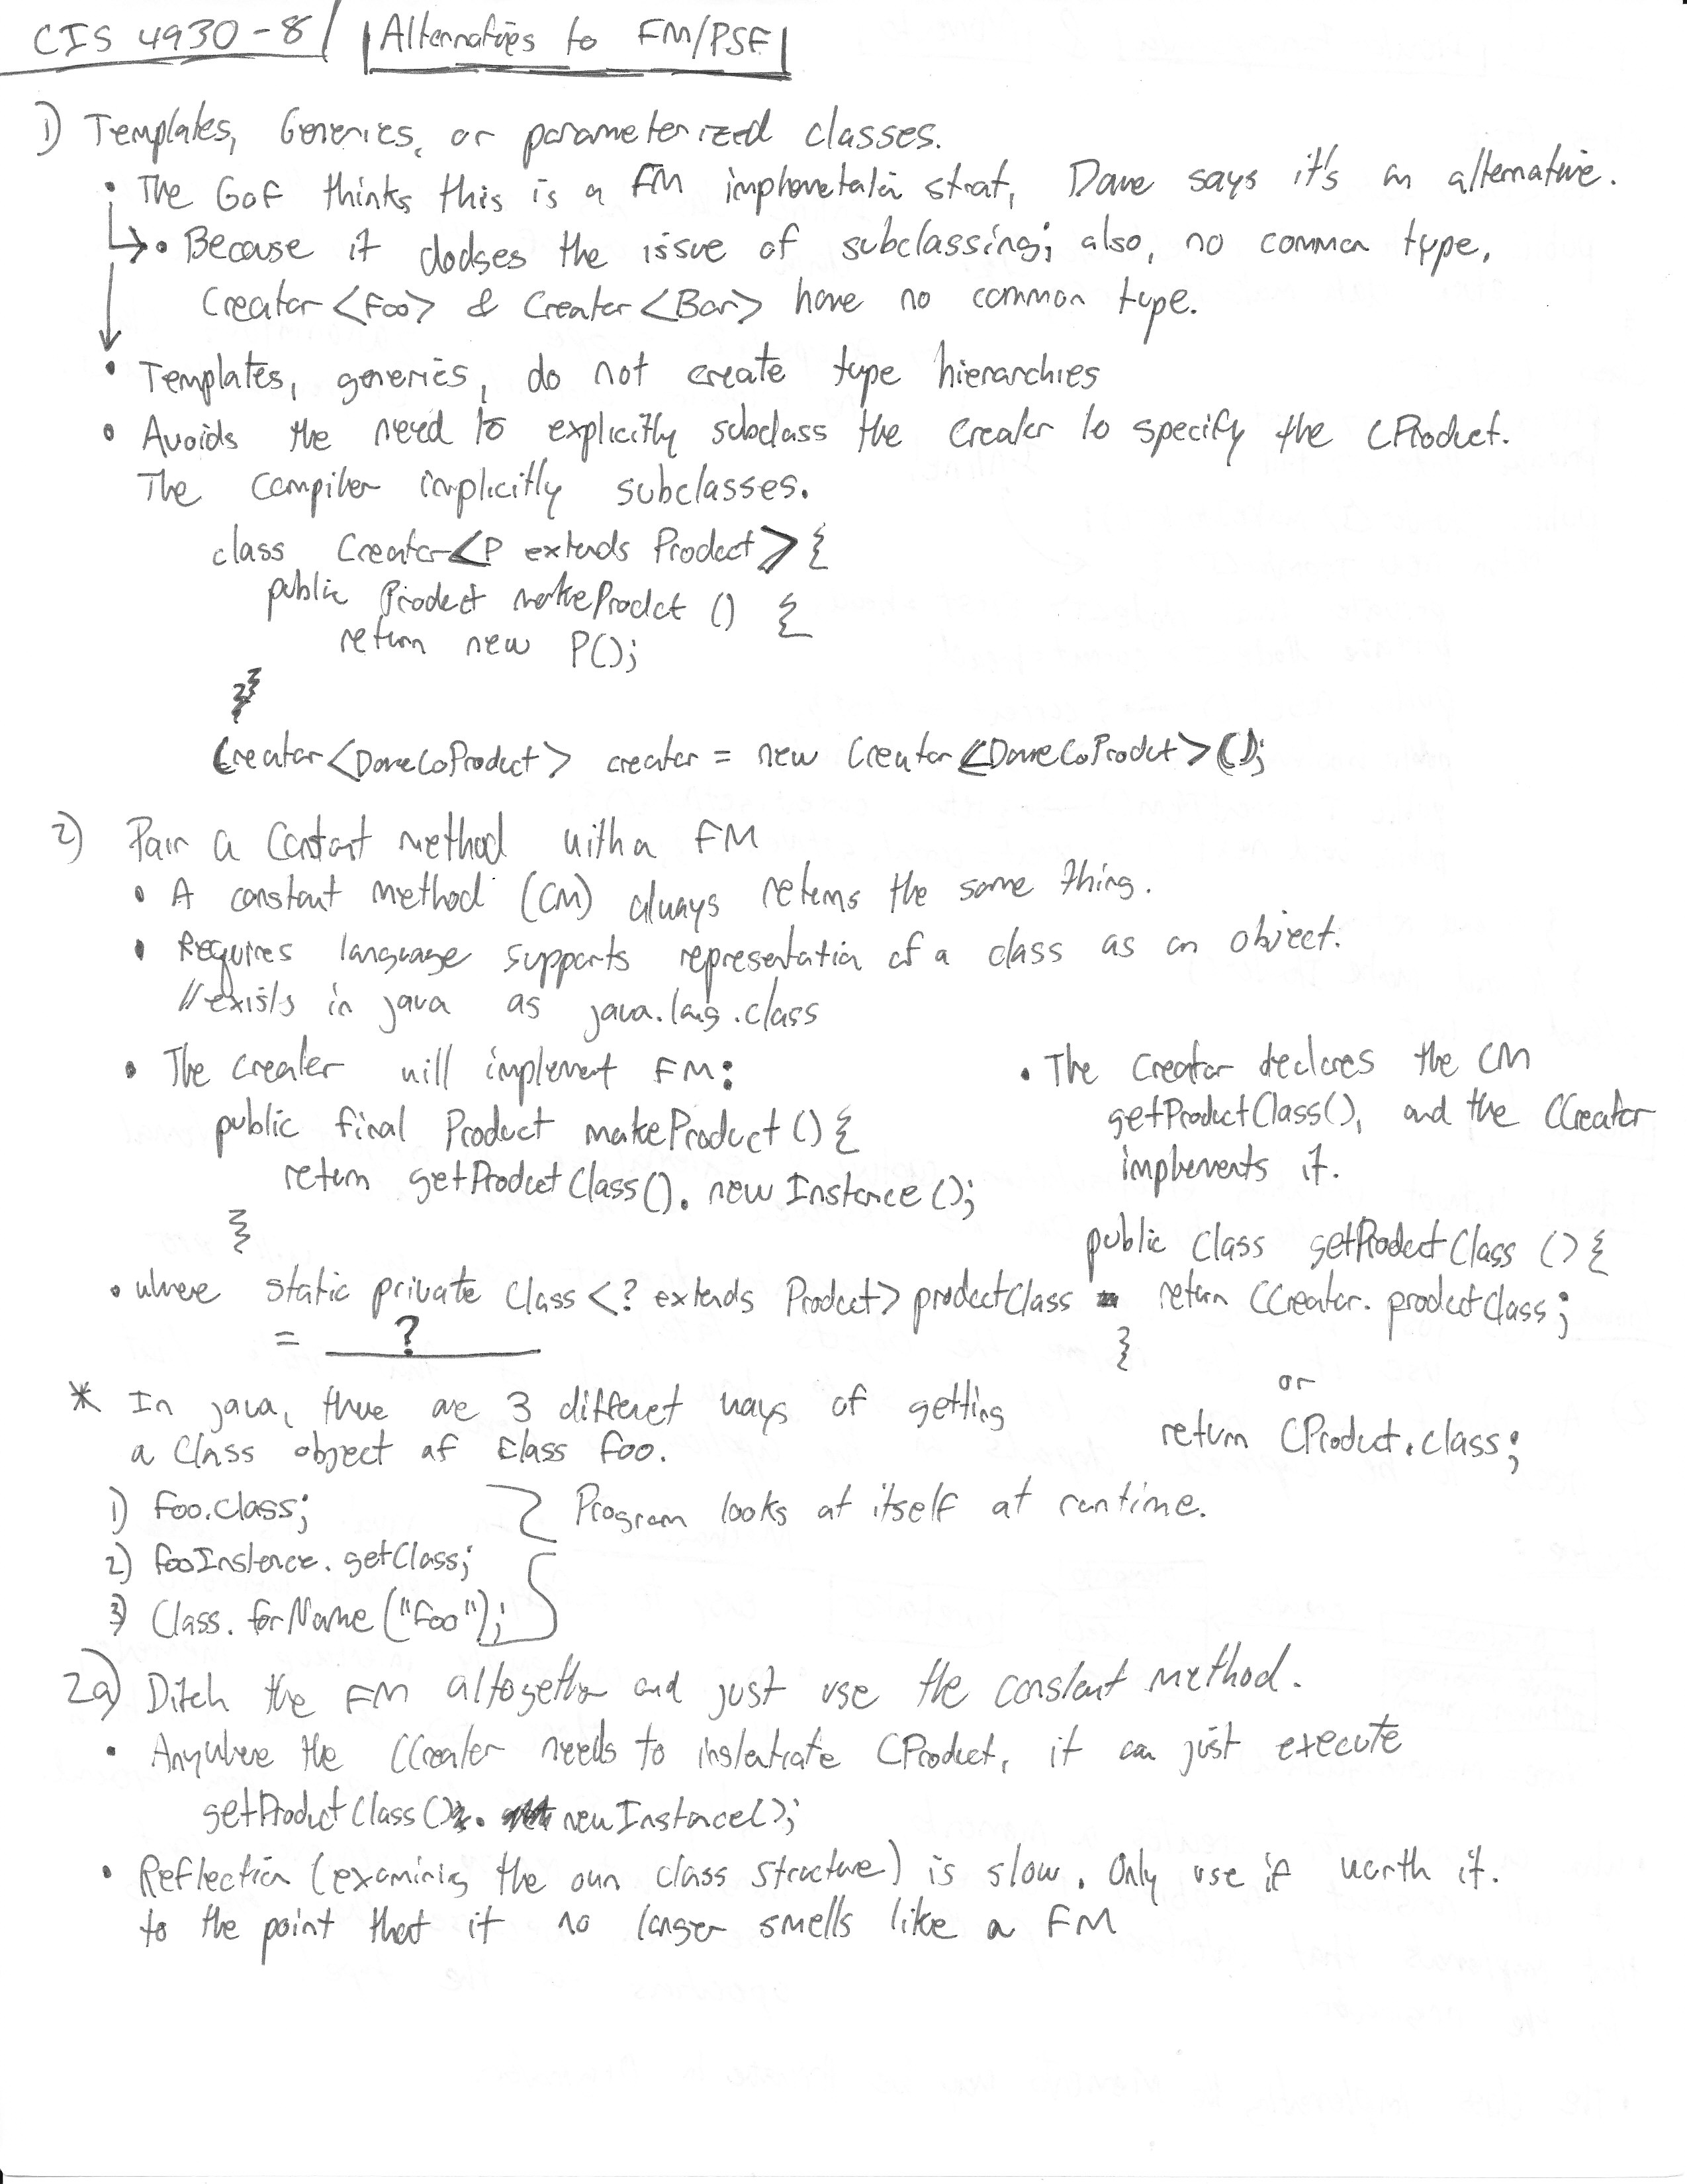 CIS 4930-8 Alternatives to FM/PSF
1) Templates, Generics, or parameterized classes.
• The GoF thinks this is a FM implemetatain strat, Dave says it's an alternative.
• Because it dodges the issue of subclassing; also, no common type,
Creator <Foo> & Creator <Bar> have no common type.
• Templates, generics, do not create type hierarchies
• Avoids the need to explicitly subclass the Creator to specify the CProduct.
The compiler implicitly subclasses.
class Creator<P extends Product>{
public Product makeProdct () {
return new P();
}}
Creator<DaveCoProduct> creator = new Creator<DaveCoProdut>();
2) Pair a Constant method with a FM
• A constant method (CM) always returns the same thing.
• Requires language supports representation of a class as an object.
//exists in java as java.lang.class
• The creater will implement FM:
public final Product makeProduct () {
return getProductClass(). newInstance ();
}
• where static private Class <? extends Product> productClass
= ?
• The Creator declares the CM
getProductClass(), and the CCreator
implements it.
public Class getProductClass () {
return CCreator. productClass;
}
or
return CProduct.class;
* In java, there are 3 different ways of getting
a Class object of class foo.
1) foo.class;
2) fooInstance. getClass;
3) Class. forName ("foo");
Program looks at itself at runtime.
2a) Ditch the FM altogether and just use the constant method.
• Anywhere the CCreator needs to instantiate CProduct, it can just execute
getProductClass(). newInstance();
• Reflection (examining the own class structure) is slow. Only use if worth it.
to the point that it no longer smells like a FM